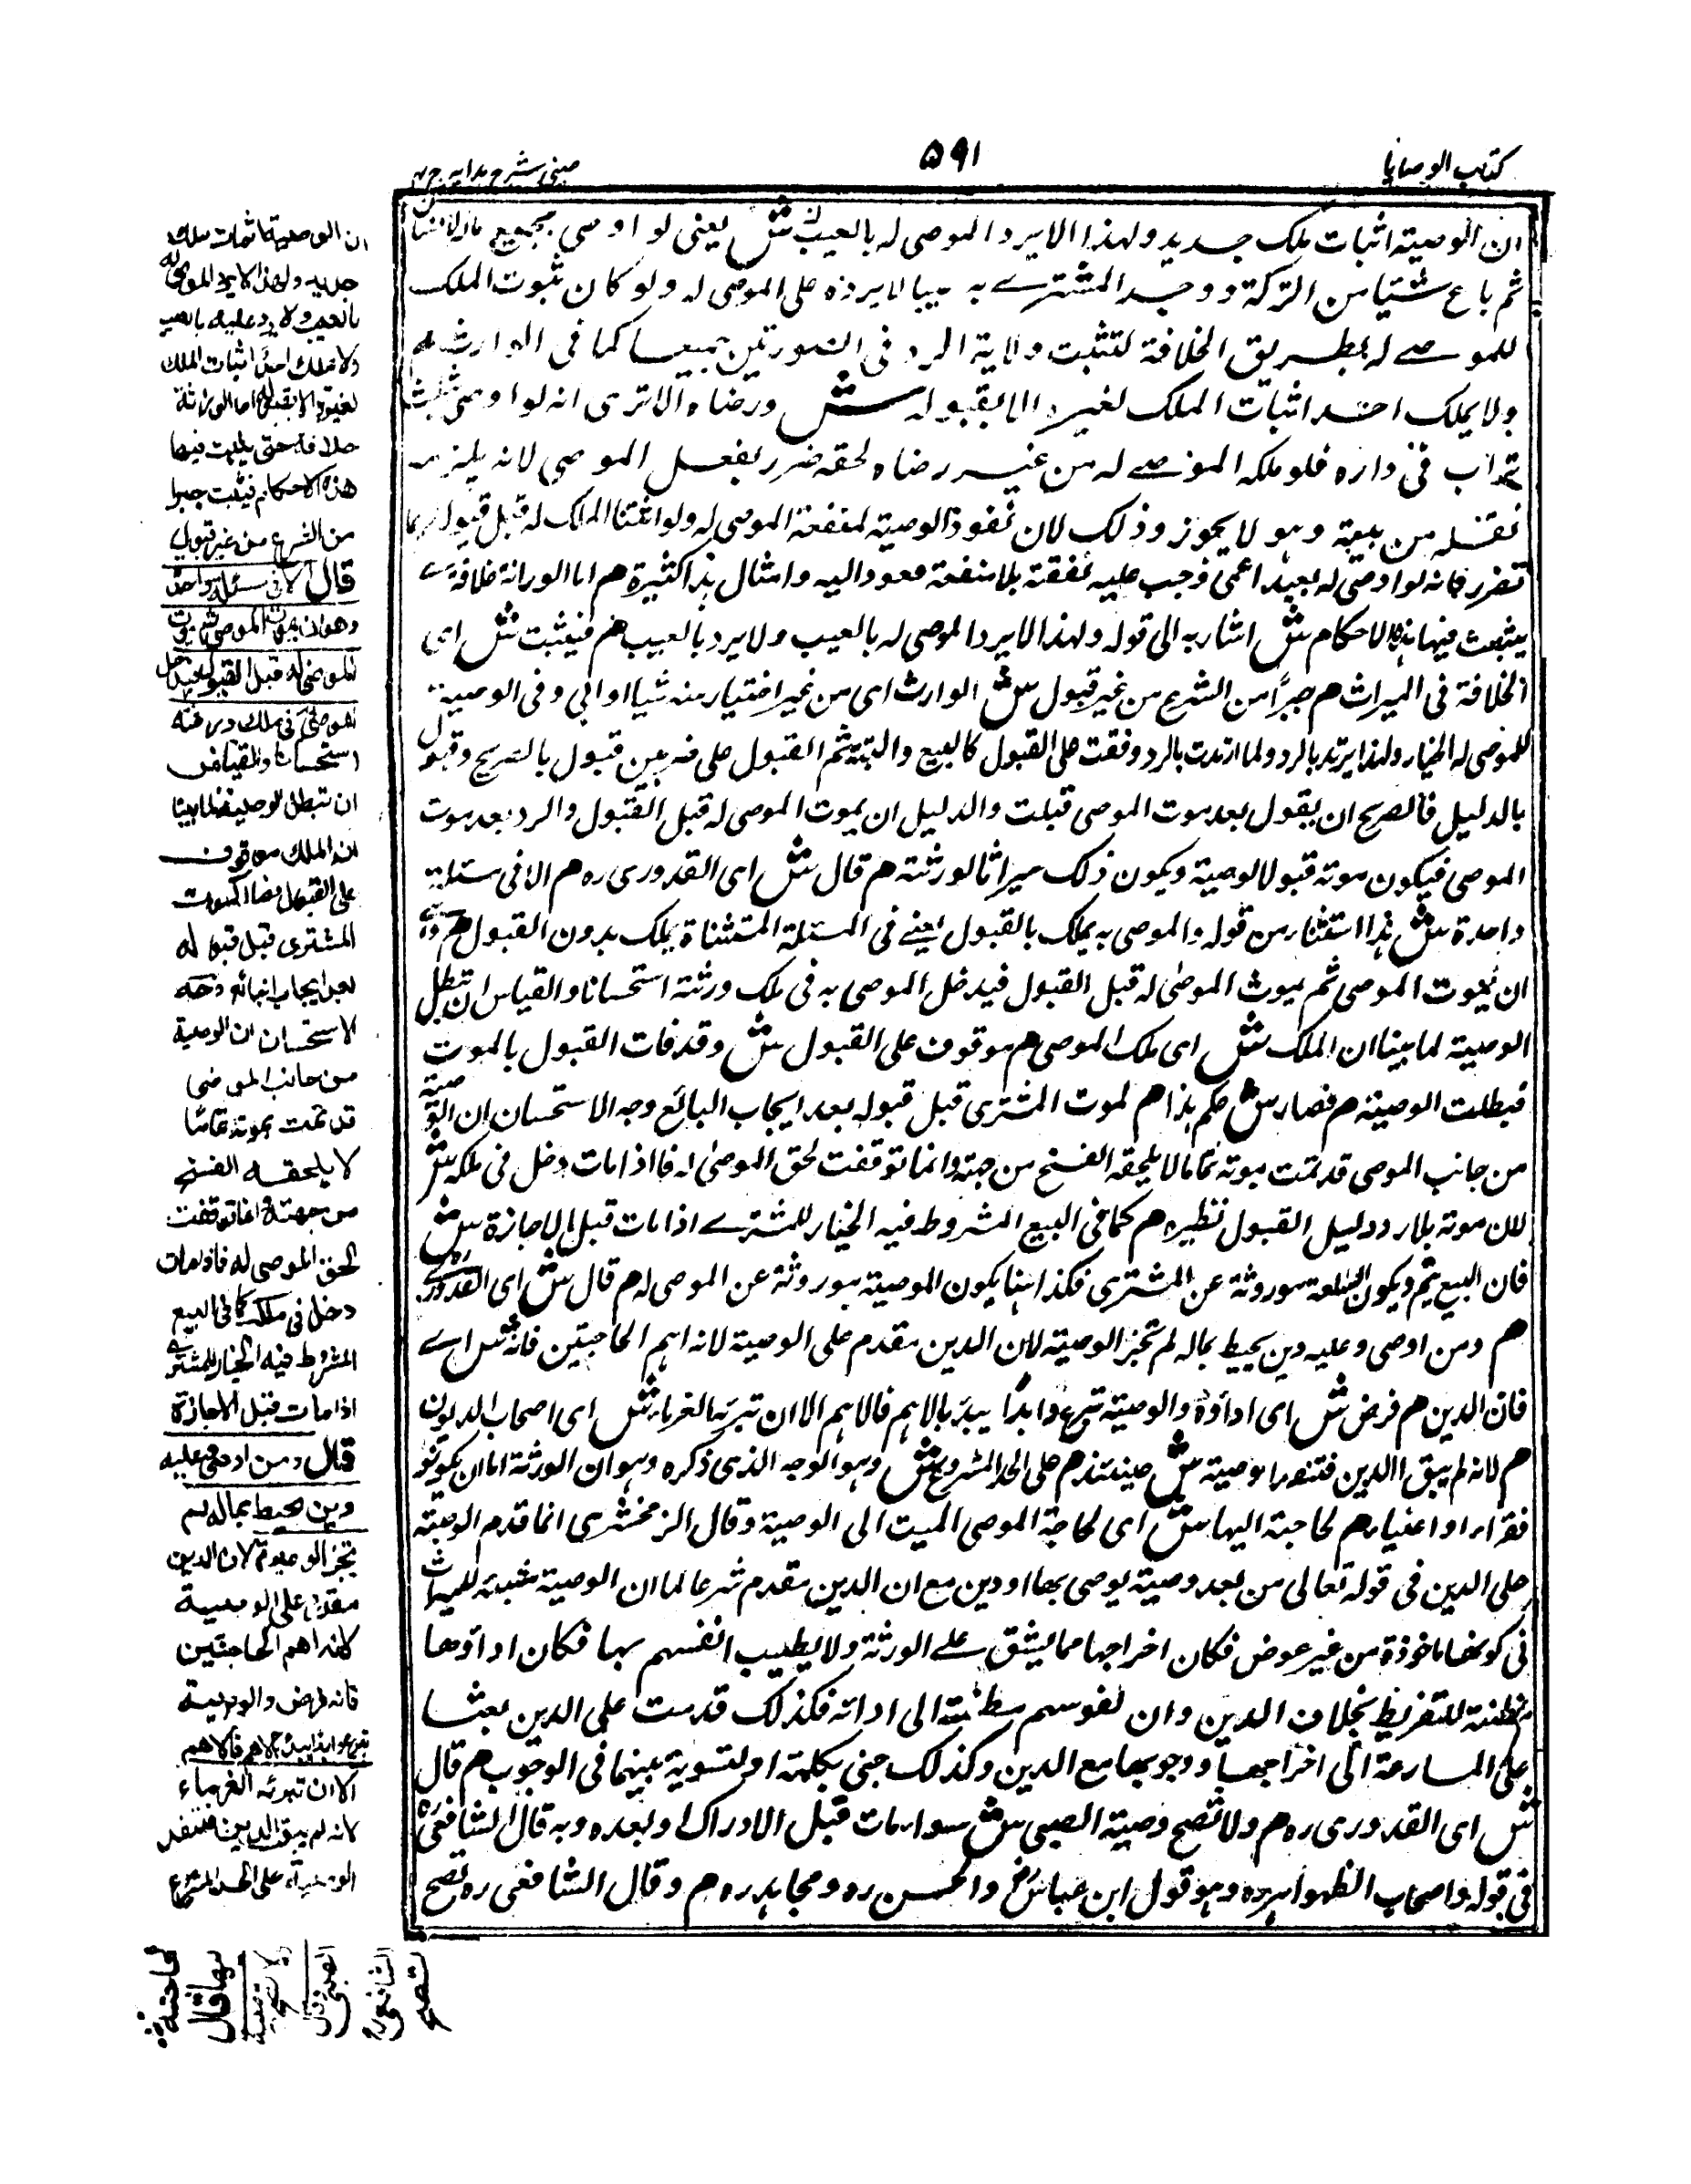 كتاب الوصايا
٥٩١
عينى شرح هدايه ج ٤
ان الوصية اثبات ملك جديد ولهذا لا يرد الموصى له بالعيب ش يعنى لو اوصى بجميع ماله لانسان
ثم باع شئيا من التركة ووجد المشترے به عيبا لا يرده على الموصى له ولو كان ثبوت الملك
للموصے له بطريق الخلافة لتثبت ولاية الرد فى الصورتين جميعا كما فى الوارث هم
ولا يملك احد اثبات الملك لغيره الا بقبوله ش ورضاه الا ترى انه لو اوصى بثلث
تراب فى داره فلو ملكه الموصے له من غير رضاه لحقه ضرر بفعل الموصى لانه يلزمه
نقله من بيته وهو لا يجوز وذلك لان نفوذ الوصية لمنفعة الموصى له ولو اثبتنا الملك له قبل قبوله ربما
تضرر فانه لو اوصى له بعبد اعمى فوجب عليه نفقته بلا منفعة تعود اليه وامثال هذا كثيرة هم اما الوراثة خلافة
يثبت فيها هذه الاحكام ش اشار به الى قوله ولهذا لا يرد الموصى له بالعيب ولا يرد بالعيب هم فيثبت ش اى
الخلافة فى الميراث هم جبرًا من الشرع من غير قبول ش الوارث اى من غير اختيار منه شيا او ابى وفى الوصية
للموصى له الخيار ولهذا يرتد بالرد ولما ارتدت بالرد وقفت على القبول كالبيع والهبة ثم القبول على ضربين قبول بالصريح وقبول
بالدليل فالصريح ان يقول بعد موت الموصى قبلت والدليل ان يموت الموصى له قبل القبول والرد بعد موت
الموصى فيكون موته قبولا لوصية ويكون ذلك ميراثا لورثته هم قال ش اى القدورى ره هم الا فى مسئلة
واحدة ش هذا استثنا من قوله والموصى به يملك بالقبول يعنے فى المسئلة المستثناة يملك بدون القبول هم وهے
ان يموت الموصى ثم يموت الموصٰى له قبل القبول فيدخل الموصى به فى ملك ورثته استحسانا والقياس ان تبطل
الوصية لما بينا ان الملك ش اى ملك الموصى هم موقوف على القبول ش وقد فات القبول بالموت
فبطلت الوصية هم فصار ش حكم هذا هم لموت المشترى قبل قبوله بعد ايجاب البائع وجه الاستحسان ان الوصية
من جانب الموصى قد تمت بموته تماما لا يلحقه الفسخ من جهته وانما توقفت لحق الموصٰى له فاذا مات دخل فى ملكه ش
لان موته بلا رد دليل القبول نظيره هم كما فى البيع المشروط فيه الخيار للمشترے اذا مات قبل الاجازة ش
فان البيع يتم ويكون السلعة موروثة عن المشترى فكذا هنا يكون الموصية موروثة عن الموصى له هم قال ش اى القدورے ره
هم ومن اوصى وعليه دين يحيط بماله لم تجز الوصية لان الدين مقدم على الوصية لانه اهم الحاجتين فانه ش اے
فان الدين هم فرض ش اى اداؤه والوصية تبرع وابدًا يبدء بالاهم فالاهم الا ان تبرئه الغرماء ش اى اصحاب الديون
هم لانه لم يبق الدين فتنفذ الوصية ش حينئذ هم على الحد المشروع ش وهو الوجه الذى ذكره وهو ان الورثة اما ان يكونو
فقراء او اغنياء هم لحاجته اليها ش اى لحاجة الموصى الميت الى الوصية وقال الزمخشرى انما قدم الوصية
على الدين فى قوله تعالى من بعد وصية يوصى بها او دين مع ان الدين مقدم شرعا لما ان الوصية شبهة للميراث
فى كونها ماخوذة من غير عوض فكان اخراجها مما يشق علے الورثة ولا يطيب انفسهم بها فكان اداؤها
مظنة للتفريط بخلاف الدين وان نفوسهم مطمئنة الى ادائه فكذلك قدمت على الدين بعثا
على المسارعة الى اخراجها ووجوبها مع الدين وكذلك جئى بكلمة او لتسوية بينهما فى الوجوب هم قال
ش اى القدورى ره هم ولا تصح وصية الصبى ش سواء مات قبل الادراك او بعده وبه قال الشافعى ره
فى قوله واصحاب الظواهر وهو قول ابن عباس رض والحسن ره ومجاهد ره هم وقال الشافعى ره تصح
ان الوصية اثبات ملك
جديد ولهذا لا يرد الموصى له
بالعيب ولا يرد عليه بالعيب
ولا يملك احد اثبات الملك
لغيره الا بقبوله اما الوراثة
خلافة حتى يثبت فيها
هذه الاحكام فيثبت جبرا
من الشرع من غير قبول
قال الا فى مسئلة واحدة
وهو ان يموت الموصى ثم يموت
الموصى له قبل القبول فيدخل
الموصى فى ملك ورثته
استحسانا والقياس
ان تبطل الوصية لما بينا
ان الملك موقوف
على القبول فصار كموت
المشترى قبل قبوله
بعد ايجاب البائع وجه
الاستحسان ان الوصية
من جانب الموصى
قد تمت بموته تماما
لا يلحقه الفسخ
من جهته وانما توقفت
لحق الموصى له فاذا مات
دخل فى ملكه كما فى البيع
المشروط فيه الخيار للمشترے
اذا مات قبل الاجازة
قال ومن اوصى وعليه
دين يحيط بماله لم
تجز الوصية لان الدين
مقدم على الوصية
لانه اهم الحاجتين
فانه فرض والوصية
تبرع وابدا يبدء بالاهم فالاهم
الا ان تبرئه الغرماء
لانه لم يبق الدين فتنفذ
الوصية على الحد المشروع
لحاجته
اليها قال
ولا تصح وصية
الصبى وقال
الشافعى
تصح